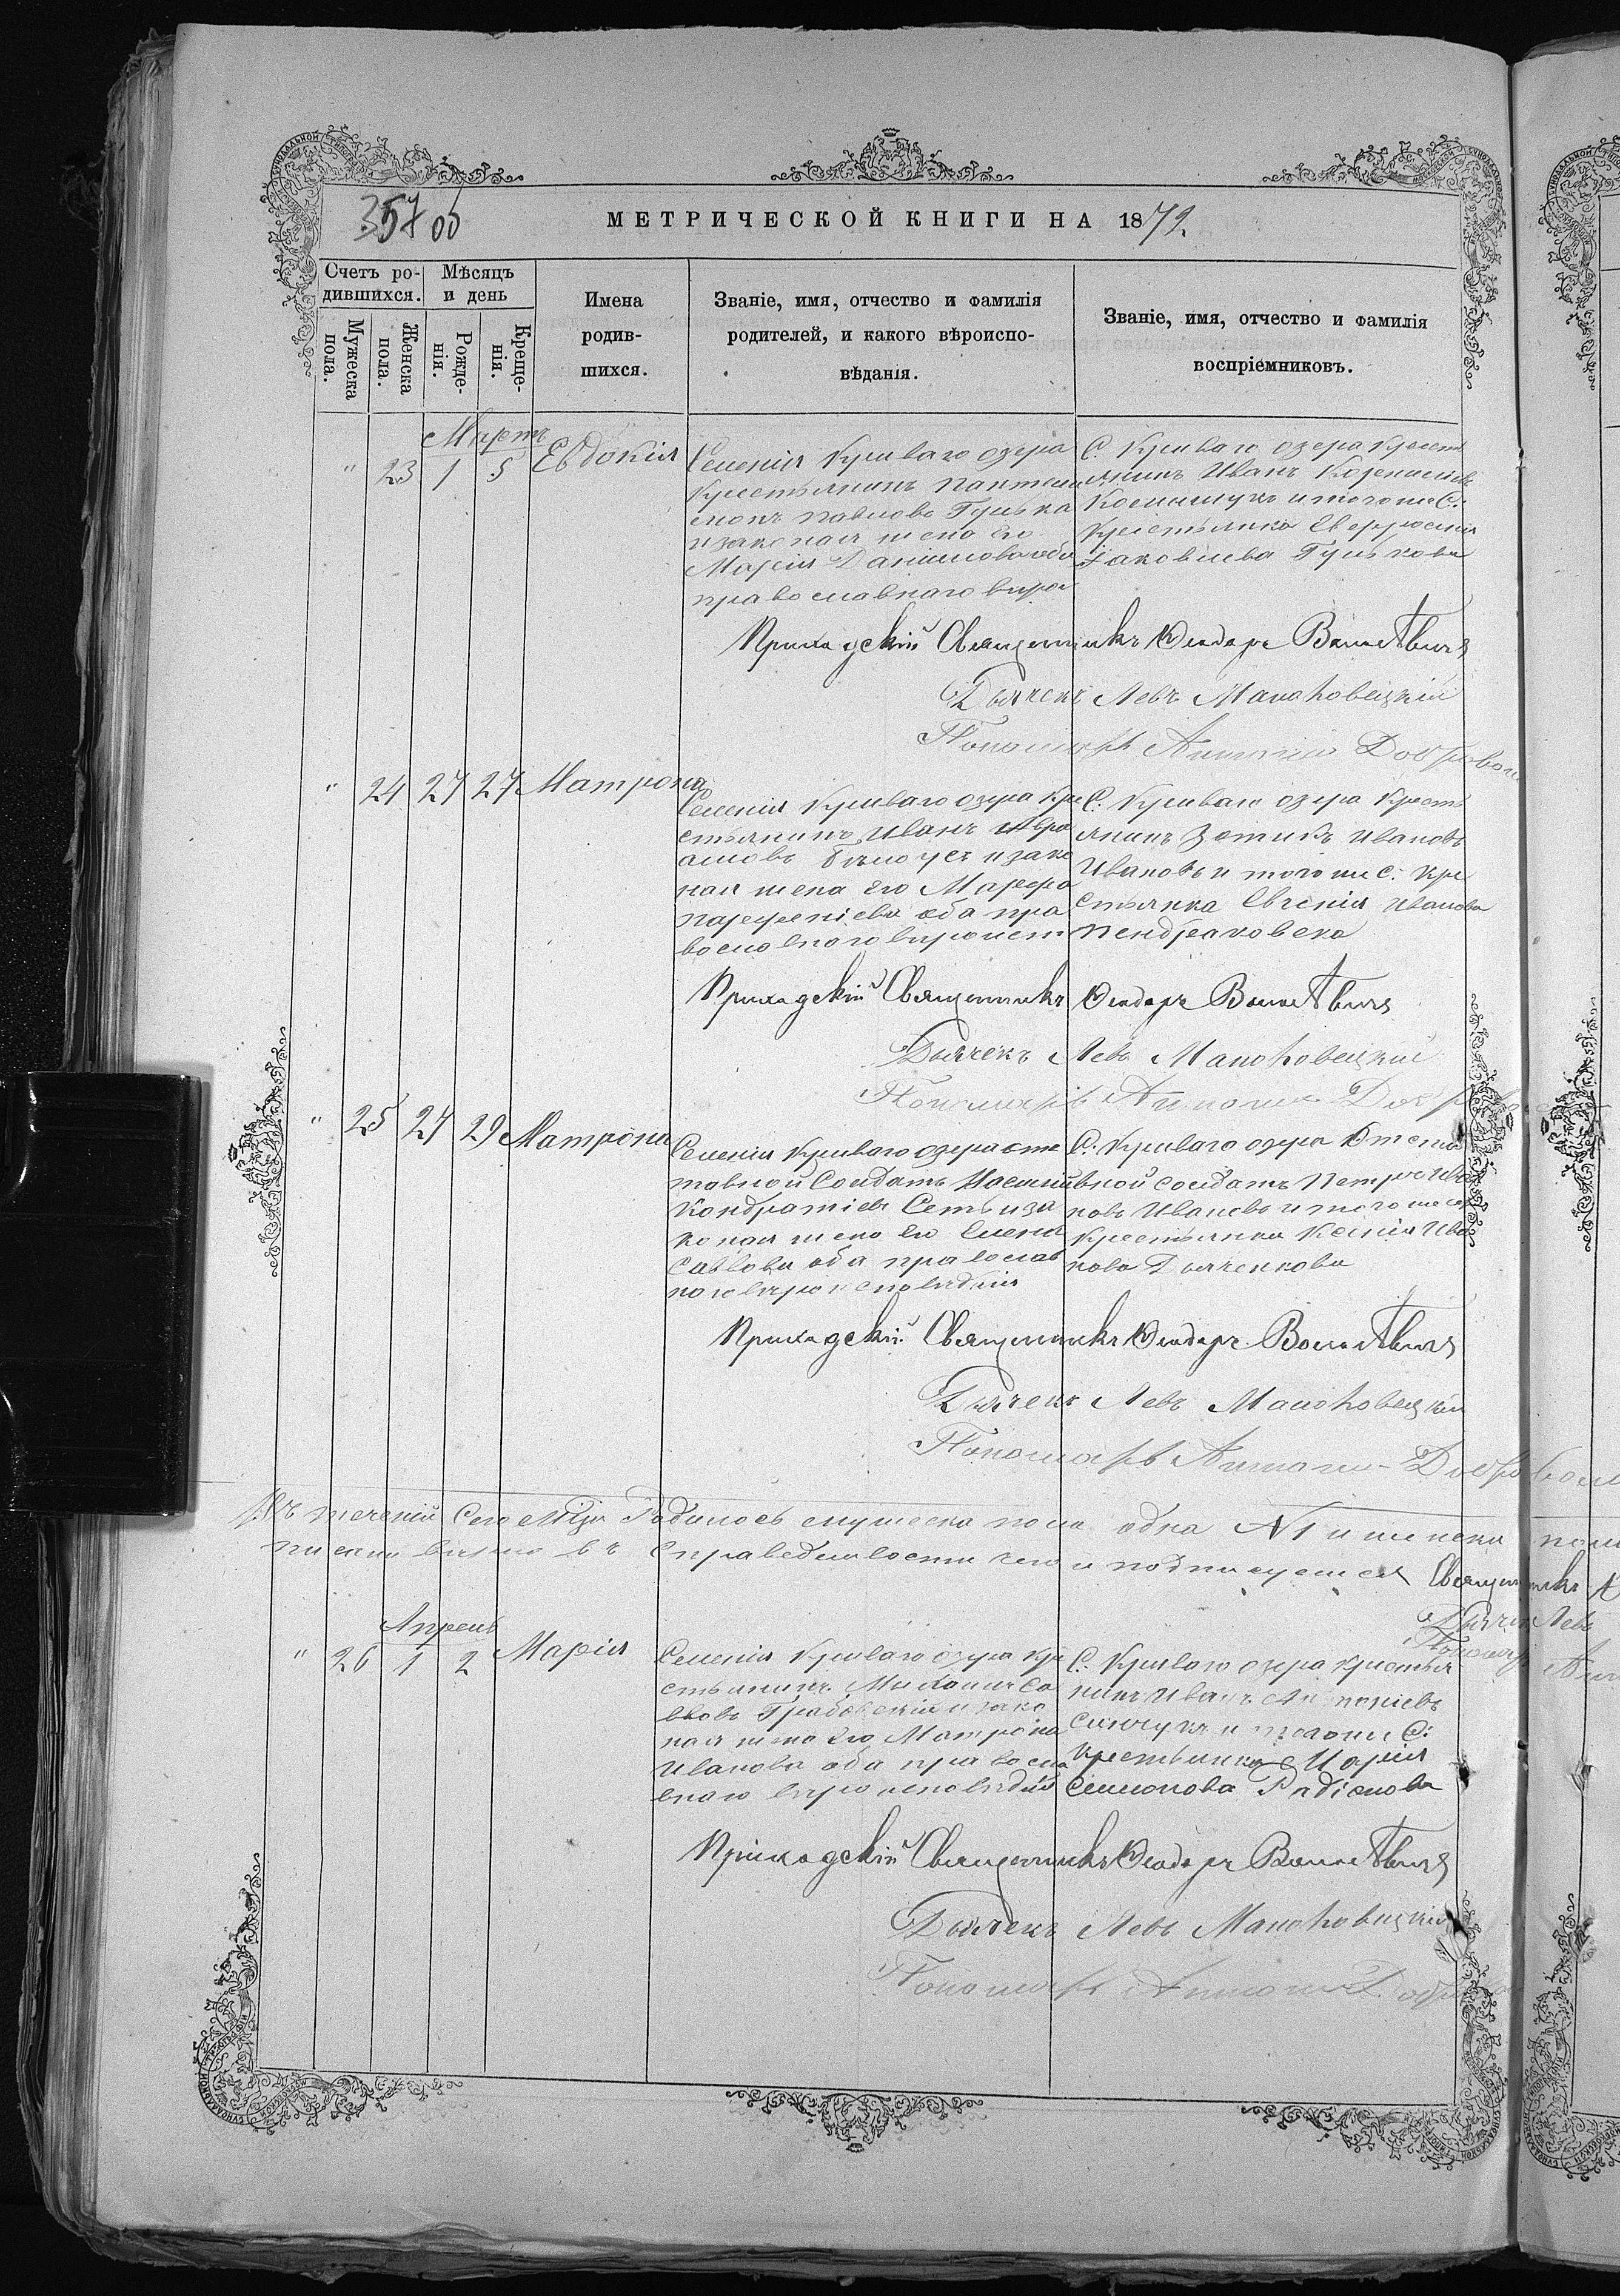 357 об
МЕТРИЧЕСКОЙ КНИГИ НА 1872.
Счетъ ро-
дившихся.
Мѣсяцъ
и день
Мужеска
пола.
Женска
пола.
Рожде-
нія.
Креще-
нія.
Имена
родив-
шихся.
Званіе, имя, отчество и фамилія
родителей, и какого вѣроиспо-
вѣданія.
Званіе, имя, отчество и фамилія
воспріемниковъ.
Мартъ
" 23 1 5 Евдокія
Селенія Криваго озера
крестьянинъ Пантели
монъ Павловъ Гулька
и законая жена его
Марія Даниилова оба
православнаго вѣрои
С. Криваго озера крест
янинъ Иванъ
и того же С.
крестьянка Евфросинія
Іаковлева Гулькова
Приходскій Священникъ Ѳеодоръ
Дьячекъ Левъ Маноковецкій
Пономарь Антоній
" 24 27 27 Матрона
Селенія Криваго озера кре
стьянинъ Иванъ Авра
амовъ Бѣлоусъ и зако
ная жена его Марфа
Парфеніева оба пра
вославнаго вѣроисп
С. Криваго озера крест
янинъ Зотикъ Ивановъ
Ивановъ и того же С. кре
стьянка Евгенія Иванова
Приходскій Священникъ Ѳеодоръ
Дьячекъ Левъ Маноковецкій
Пономарь Антоній
" 25 27 29 Матрона
Селенія Криваго озера отс
тавной Солдатъ Василій
Кондратіевъ и за
коная жена его Елена
Саввова оба православ
наго вѣроисповѣдія
С. Криваго озера Отста
вной солдатъ Петръ Ива
новъ Ивановъ и того же сел
крестьянка Ксенія Ива
нова Дьяченкова
Приходскій Священникъ Ѳеодоръ
Дьячекъ Левъ Маноковецкій
Пономарь Антоній
Въ теченіи Сего Мѣця Родилось мужеска пола одна № 1 и женска пола
писано вѣрно въ справедливости чего и подписуемся Священникъ
Дьячекъ Левъ
Пономарь
Апрель
" 26 1 2 Марія
Селенія Криваго озера кре
стьянинъ Михаилъ Са
ввовъ Грабовскій и зако
ная жена его Матрона
Иванова оба правосла
внаго вѣроисповѣдія
С. Криваго озера крестья
нинъ Иванъ
и того же С.
крестьянка Марія
Симеонова Радіонова
Приходскій Священникъ Ѳеодоръ
Дьячекъ Левъ Маноковецкій
Пономарь Антоній